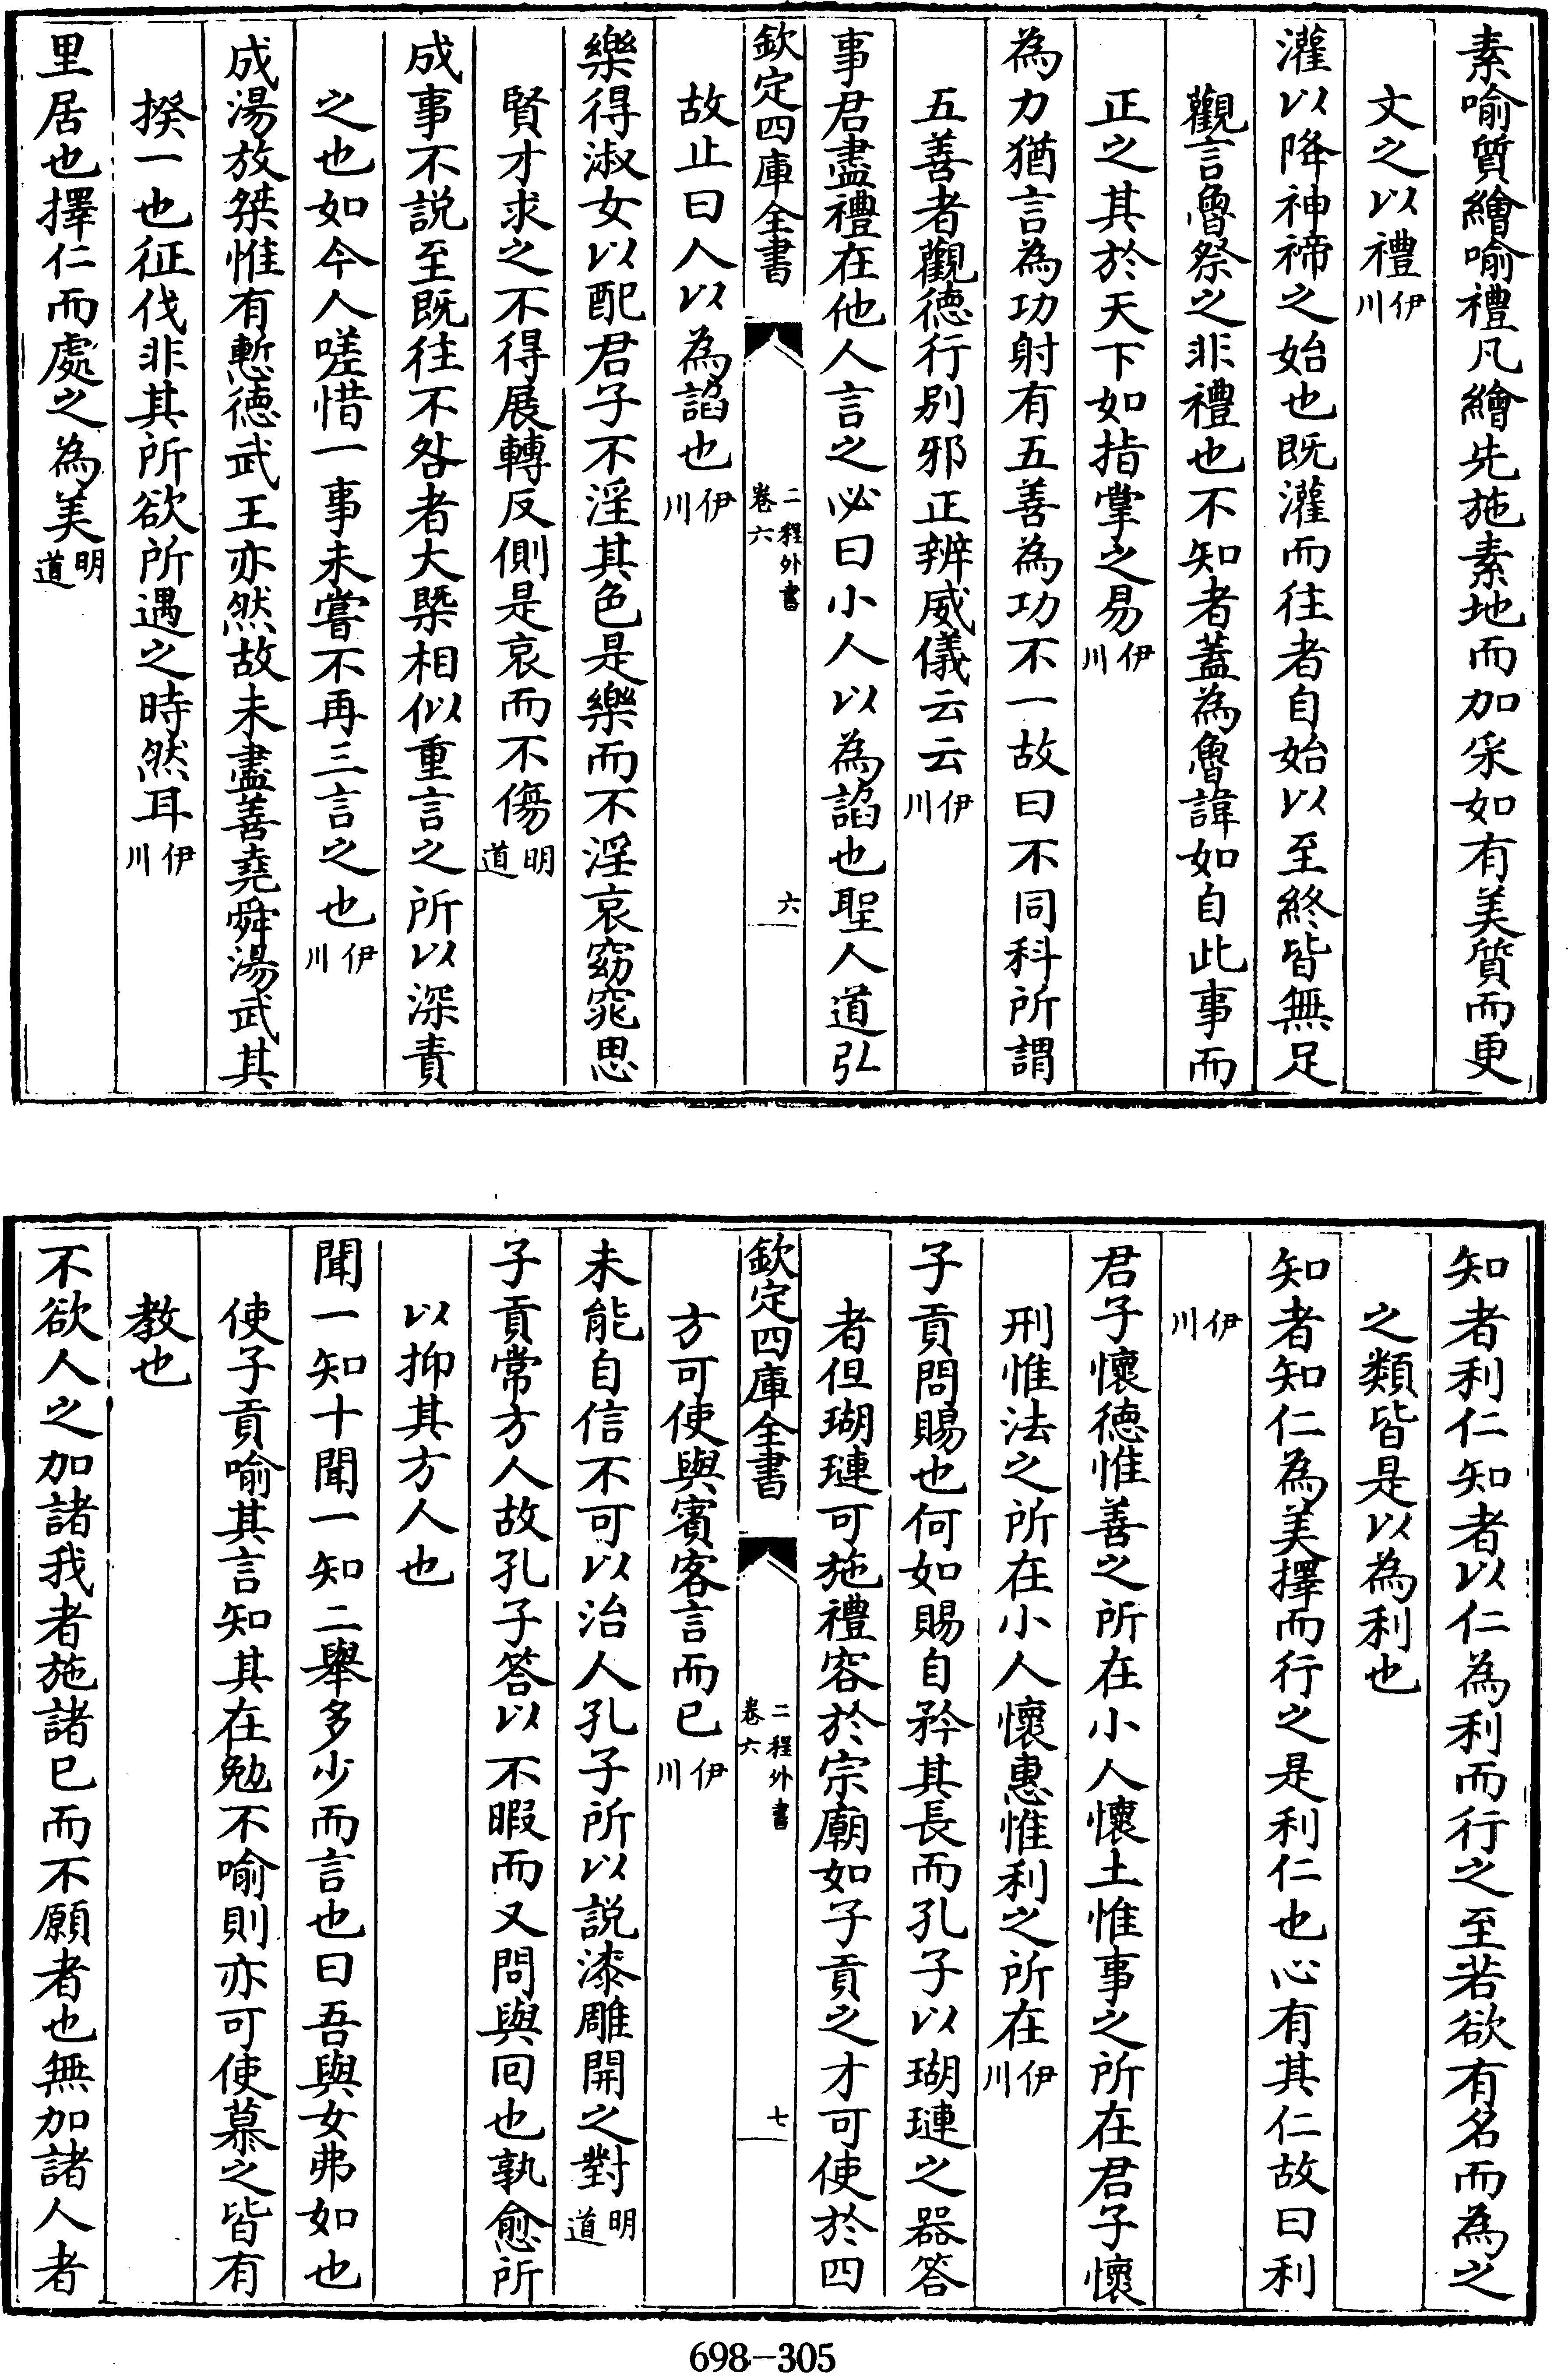 素喻質繪喻禮凡繪先施素地而加采如有美質而更
文之以禮伊川
灌以降神禘之始也既灌而往者自始以至終皆無足
觀言魯祭之非禮也不知者蓋為魯諱如自此事而
正之其於天下如指掌之易伊川
為力猶言為功射有五善為功不一故曰不同科所謂
五善者觀德行別邪正辨威儀云云伊川
事君盡禮在他人言之必曰小人以為諂也聖人道弘
欽定四庫全書 二程外書 卷六 六
故止曰人以為諂也伊川
樂得淑女以配君子不淫其色是樂而不淫哀窈窕思
賢才求之不得展轉反側是哀而不傷明道
成事不說至既往不咎者大槩相似重言之所以深責
之也如今人嗟惜一事未嘗不再三言之也伊川
成湯放桀惟有慙德武王亦然故未盡善堯舜湯武其
揆一也征伐非其所欲所遇之時然耳伊川
里居也擇仁而處之為美明道
知者利仁知者以仁為利而行之至若欲有名而為之
之類皆是以為利也
知者知仁為美擇而行之是利仁也心有其仁故曰利
伊川
君子懷德惟善之所在小人懷土惟事之所在君子懷
刑惟法之所在小人懷惠惟利之所在伊川
子貢問賜也何如賜自矜其長而孔子以瑚璉之器答
者但瑚璉可施禮容於宗廟如子貢之才可使於四
欽定四庫全書 二程外書 卷六 七
方可使與賓客言而已伊川
未能自信不可以治人孔子所以說漆雕開之對明道
子貢常方人故孔子答以不暇而又問與回也孰愈所
以抑其方人也
聞一知十聞一知二舉多少而言也曰吾與女弗如也
使子貢喻其言知其在勉不喻則亦可使慕之皆有
教也
不欲人之加諸我者施諸已而不願者也無加諸人者
698-305